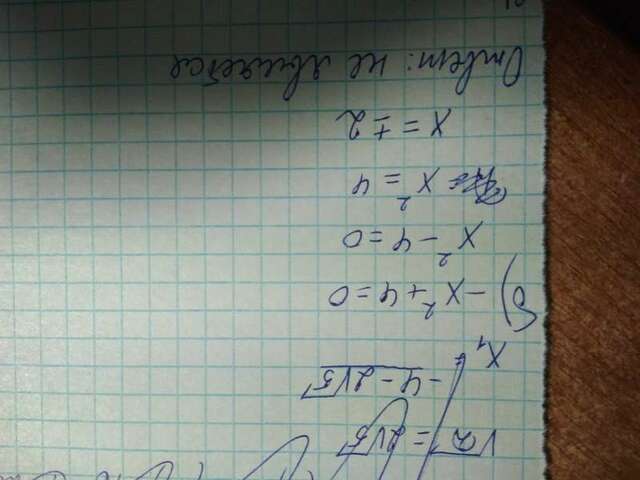 √D = 2√5
X₁ = -4 - 2√5
б) -x² + 4 = 0
x² - 4 = 0
x² = 4
x = ± 2
Ответ: не является